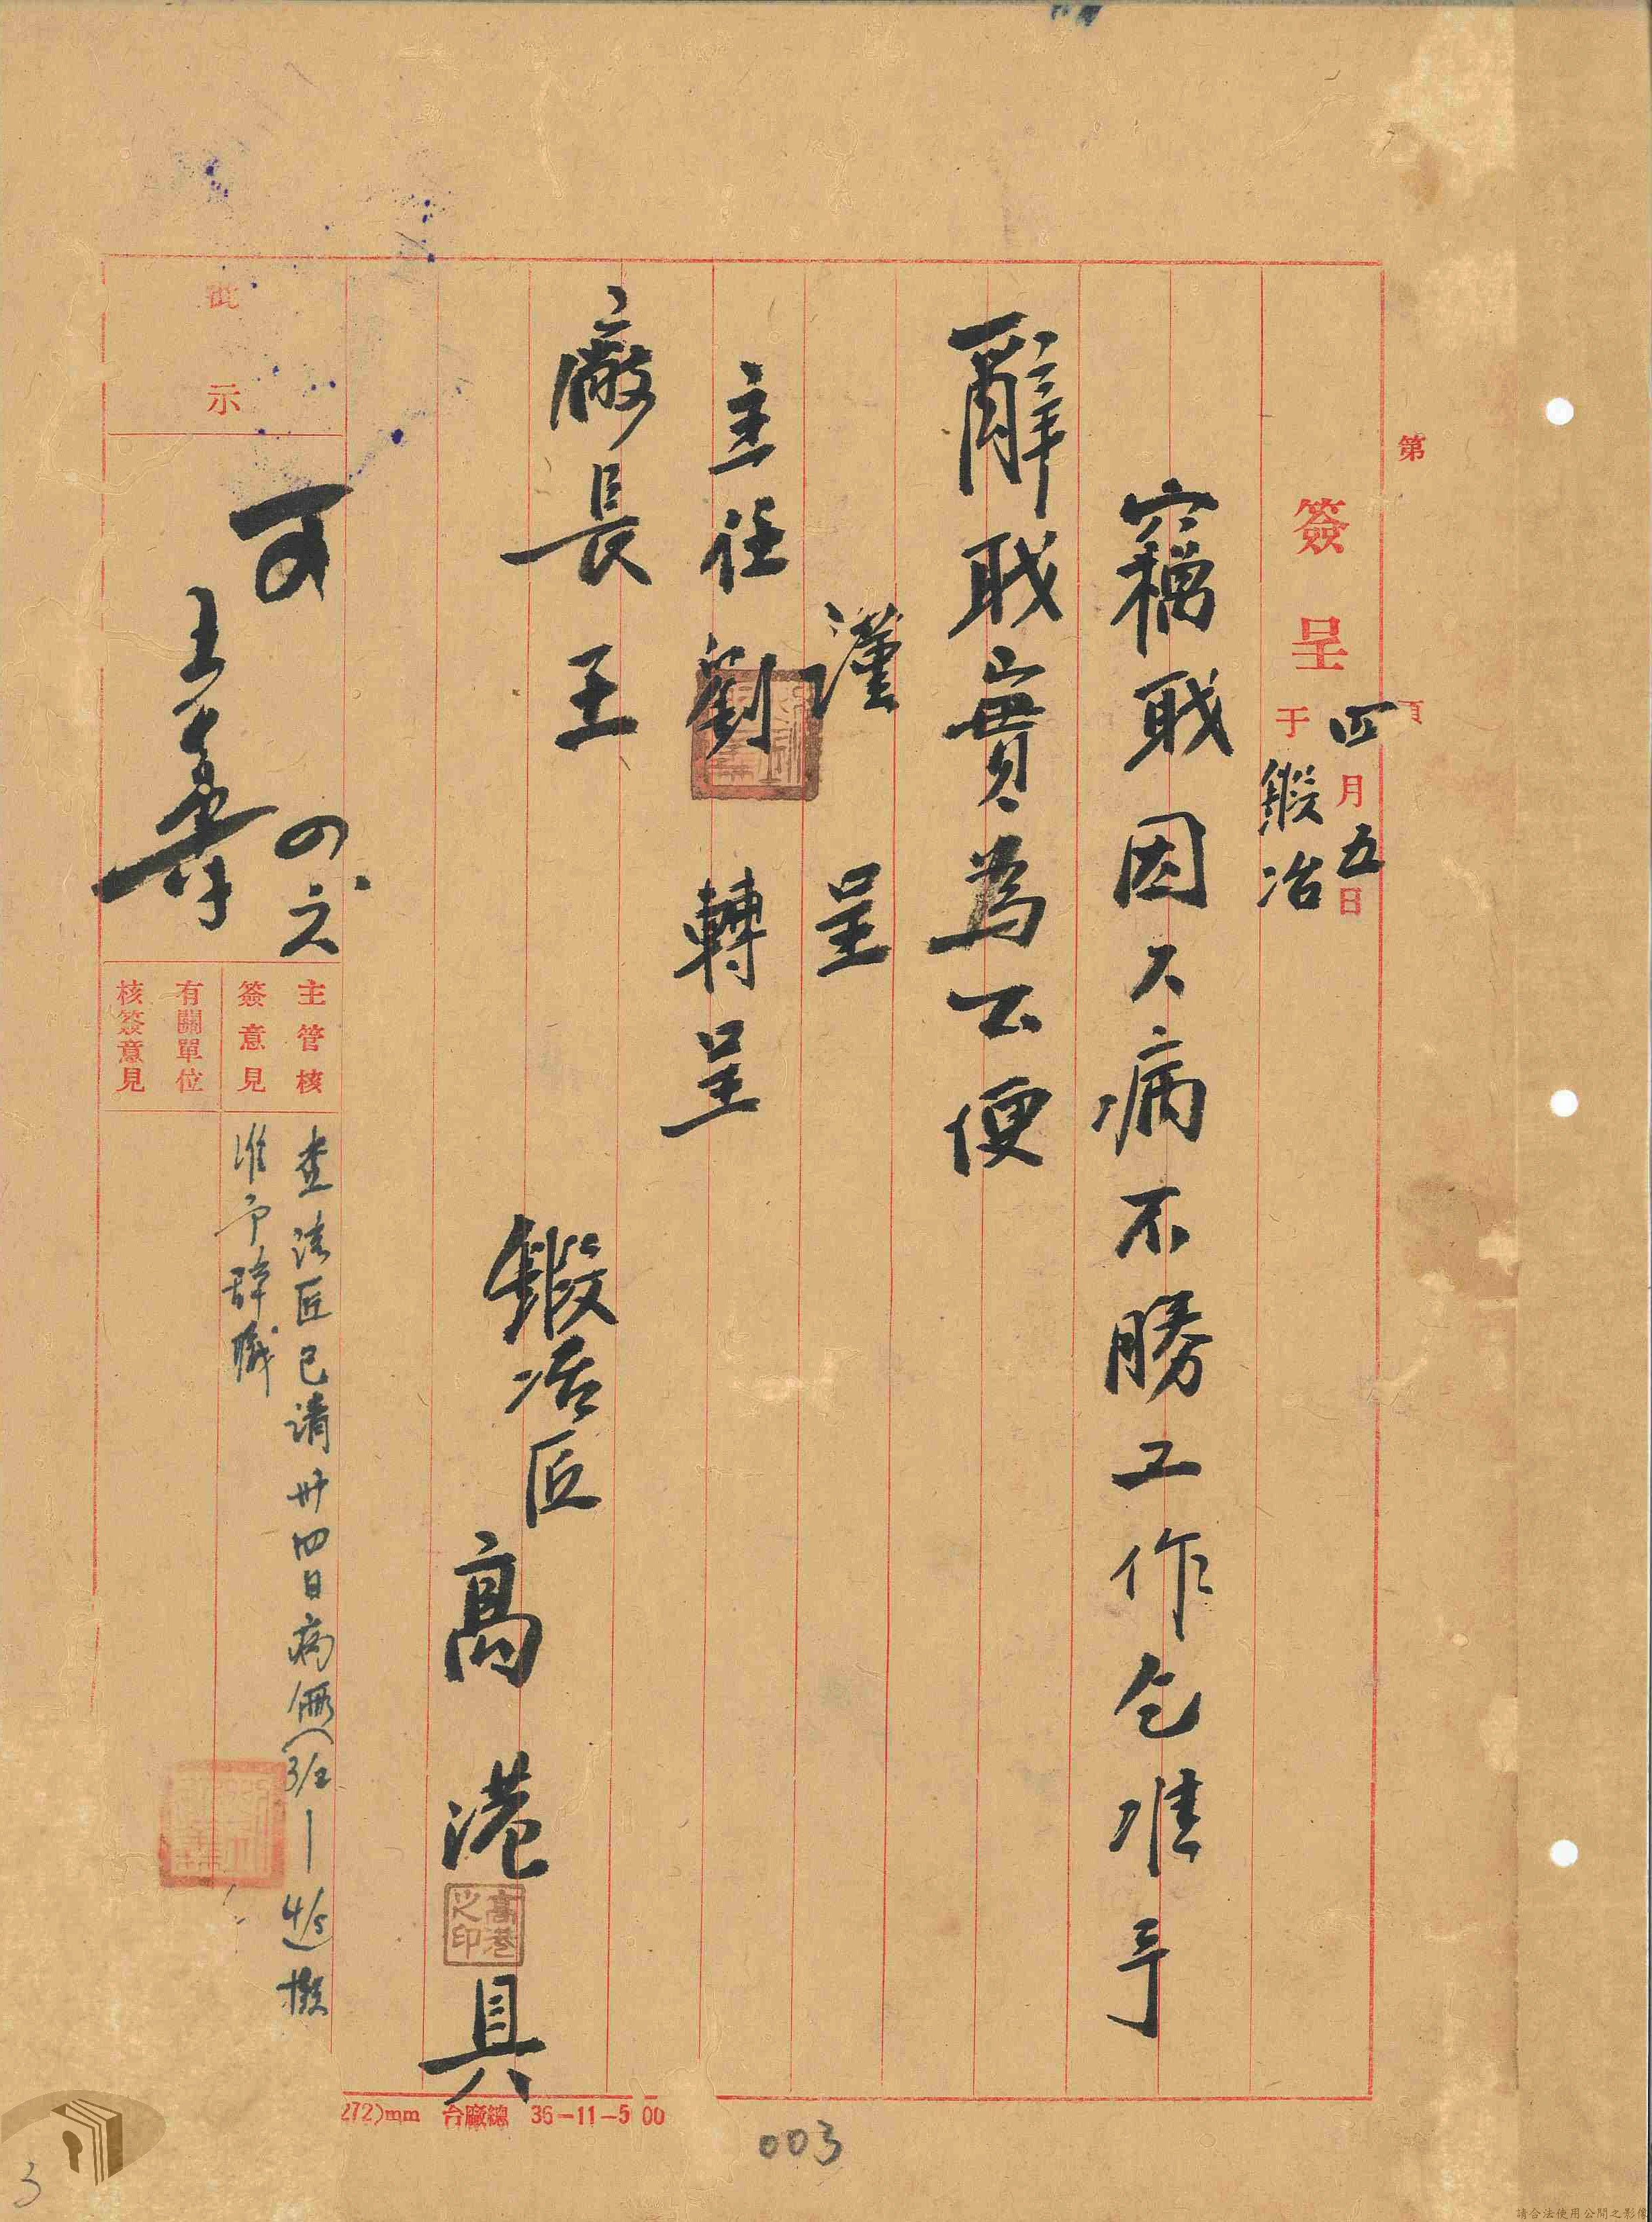 第
頁
四月五日
簽呈
于
鍛冶
竊職因久病不勝工作乞准予
辭職實為公便
謹呈
主任劉轉呈
廠長王
鍛冶匠高港具
高港之印
批示
可
四六
主管核簽意見
查該匠已請卅四日病假(3/2—4/5)擬
准予辞職
有關單位核簽意見
272)mm 台廠總 36-11-5 00
003
3
請合法使用公開之影像